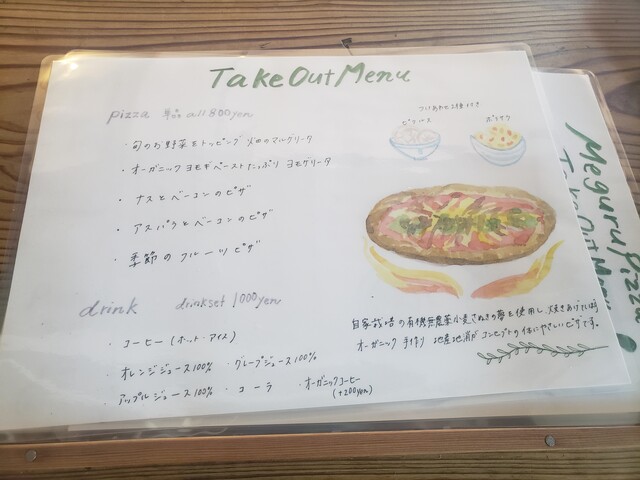 Take Out Menu
pizza 単品 all 800yen
・旬のお野菜をトッピング 畑のマルゲリータ
・オーガニックヨモギペーストたっぷり ヨモゲリータ
・ナスとベーコンのピザ
・アスパラとベーコンのピザ
・季節のフルーツピザ
つけあわせ2種付き
ピクルス
ポテサラ
drink drinkset 1000yen
・コーヒー (ホット・アイス)
・オレンジジュース100% ・グレープジュース100%
・アップルジュース100% ・コーラ ・オーガニックコーヒー
(+200yen)
自家栽培の有機無農薬小麦さぬきの夢を使用し、焼きあげている
オーガニック 手作り 地産地消がコンセプトの体にやさしいピザです。
Meguru pizza
Take Out Menu